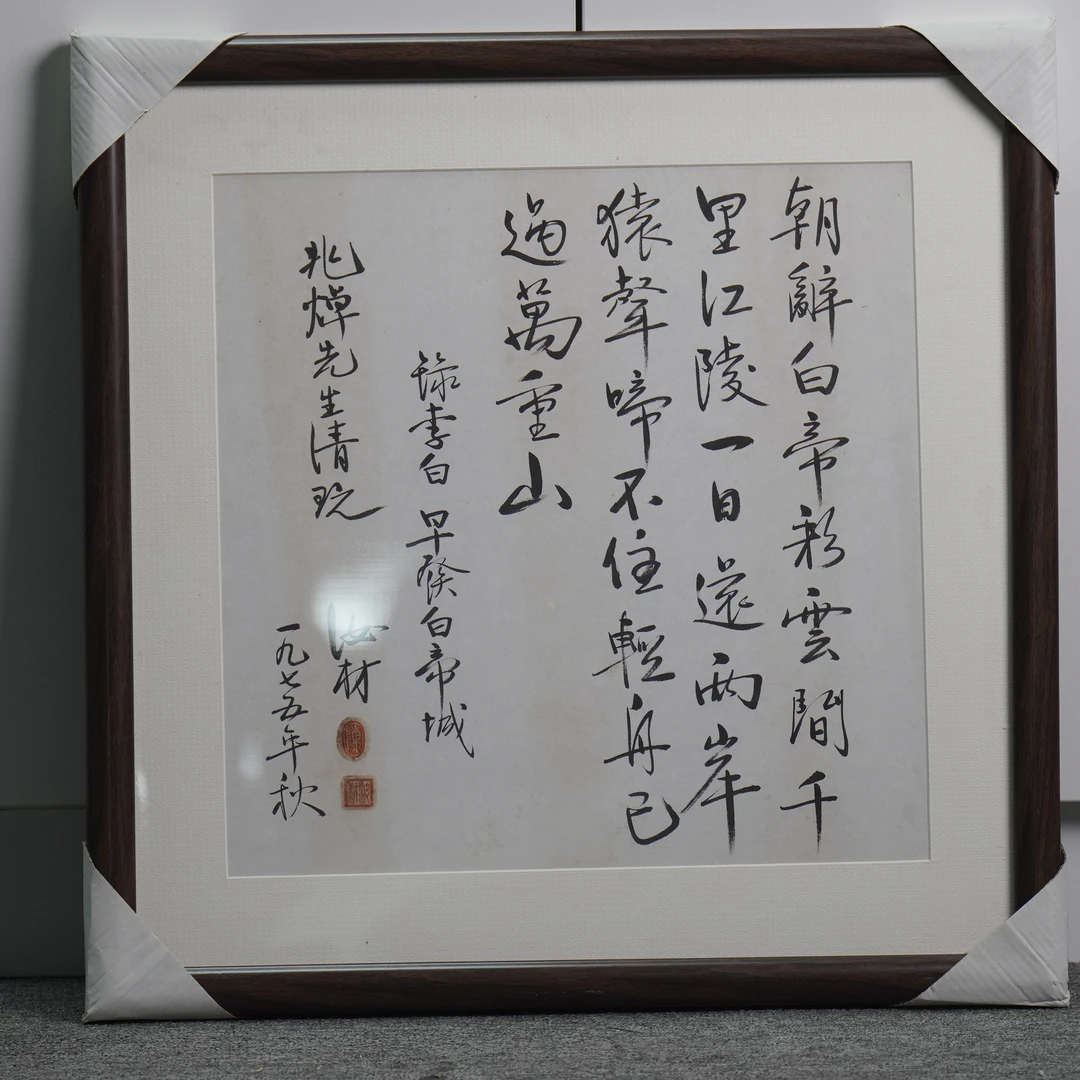 朝辭白帝彩雲間千
里江陵一日還兩岸
猿聲啼不住輕舟已
過萬重山
錄李白早發白帝城
兆焯先生清玩
汝材
一九七五年秋